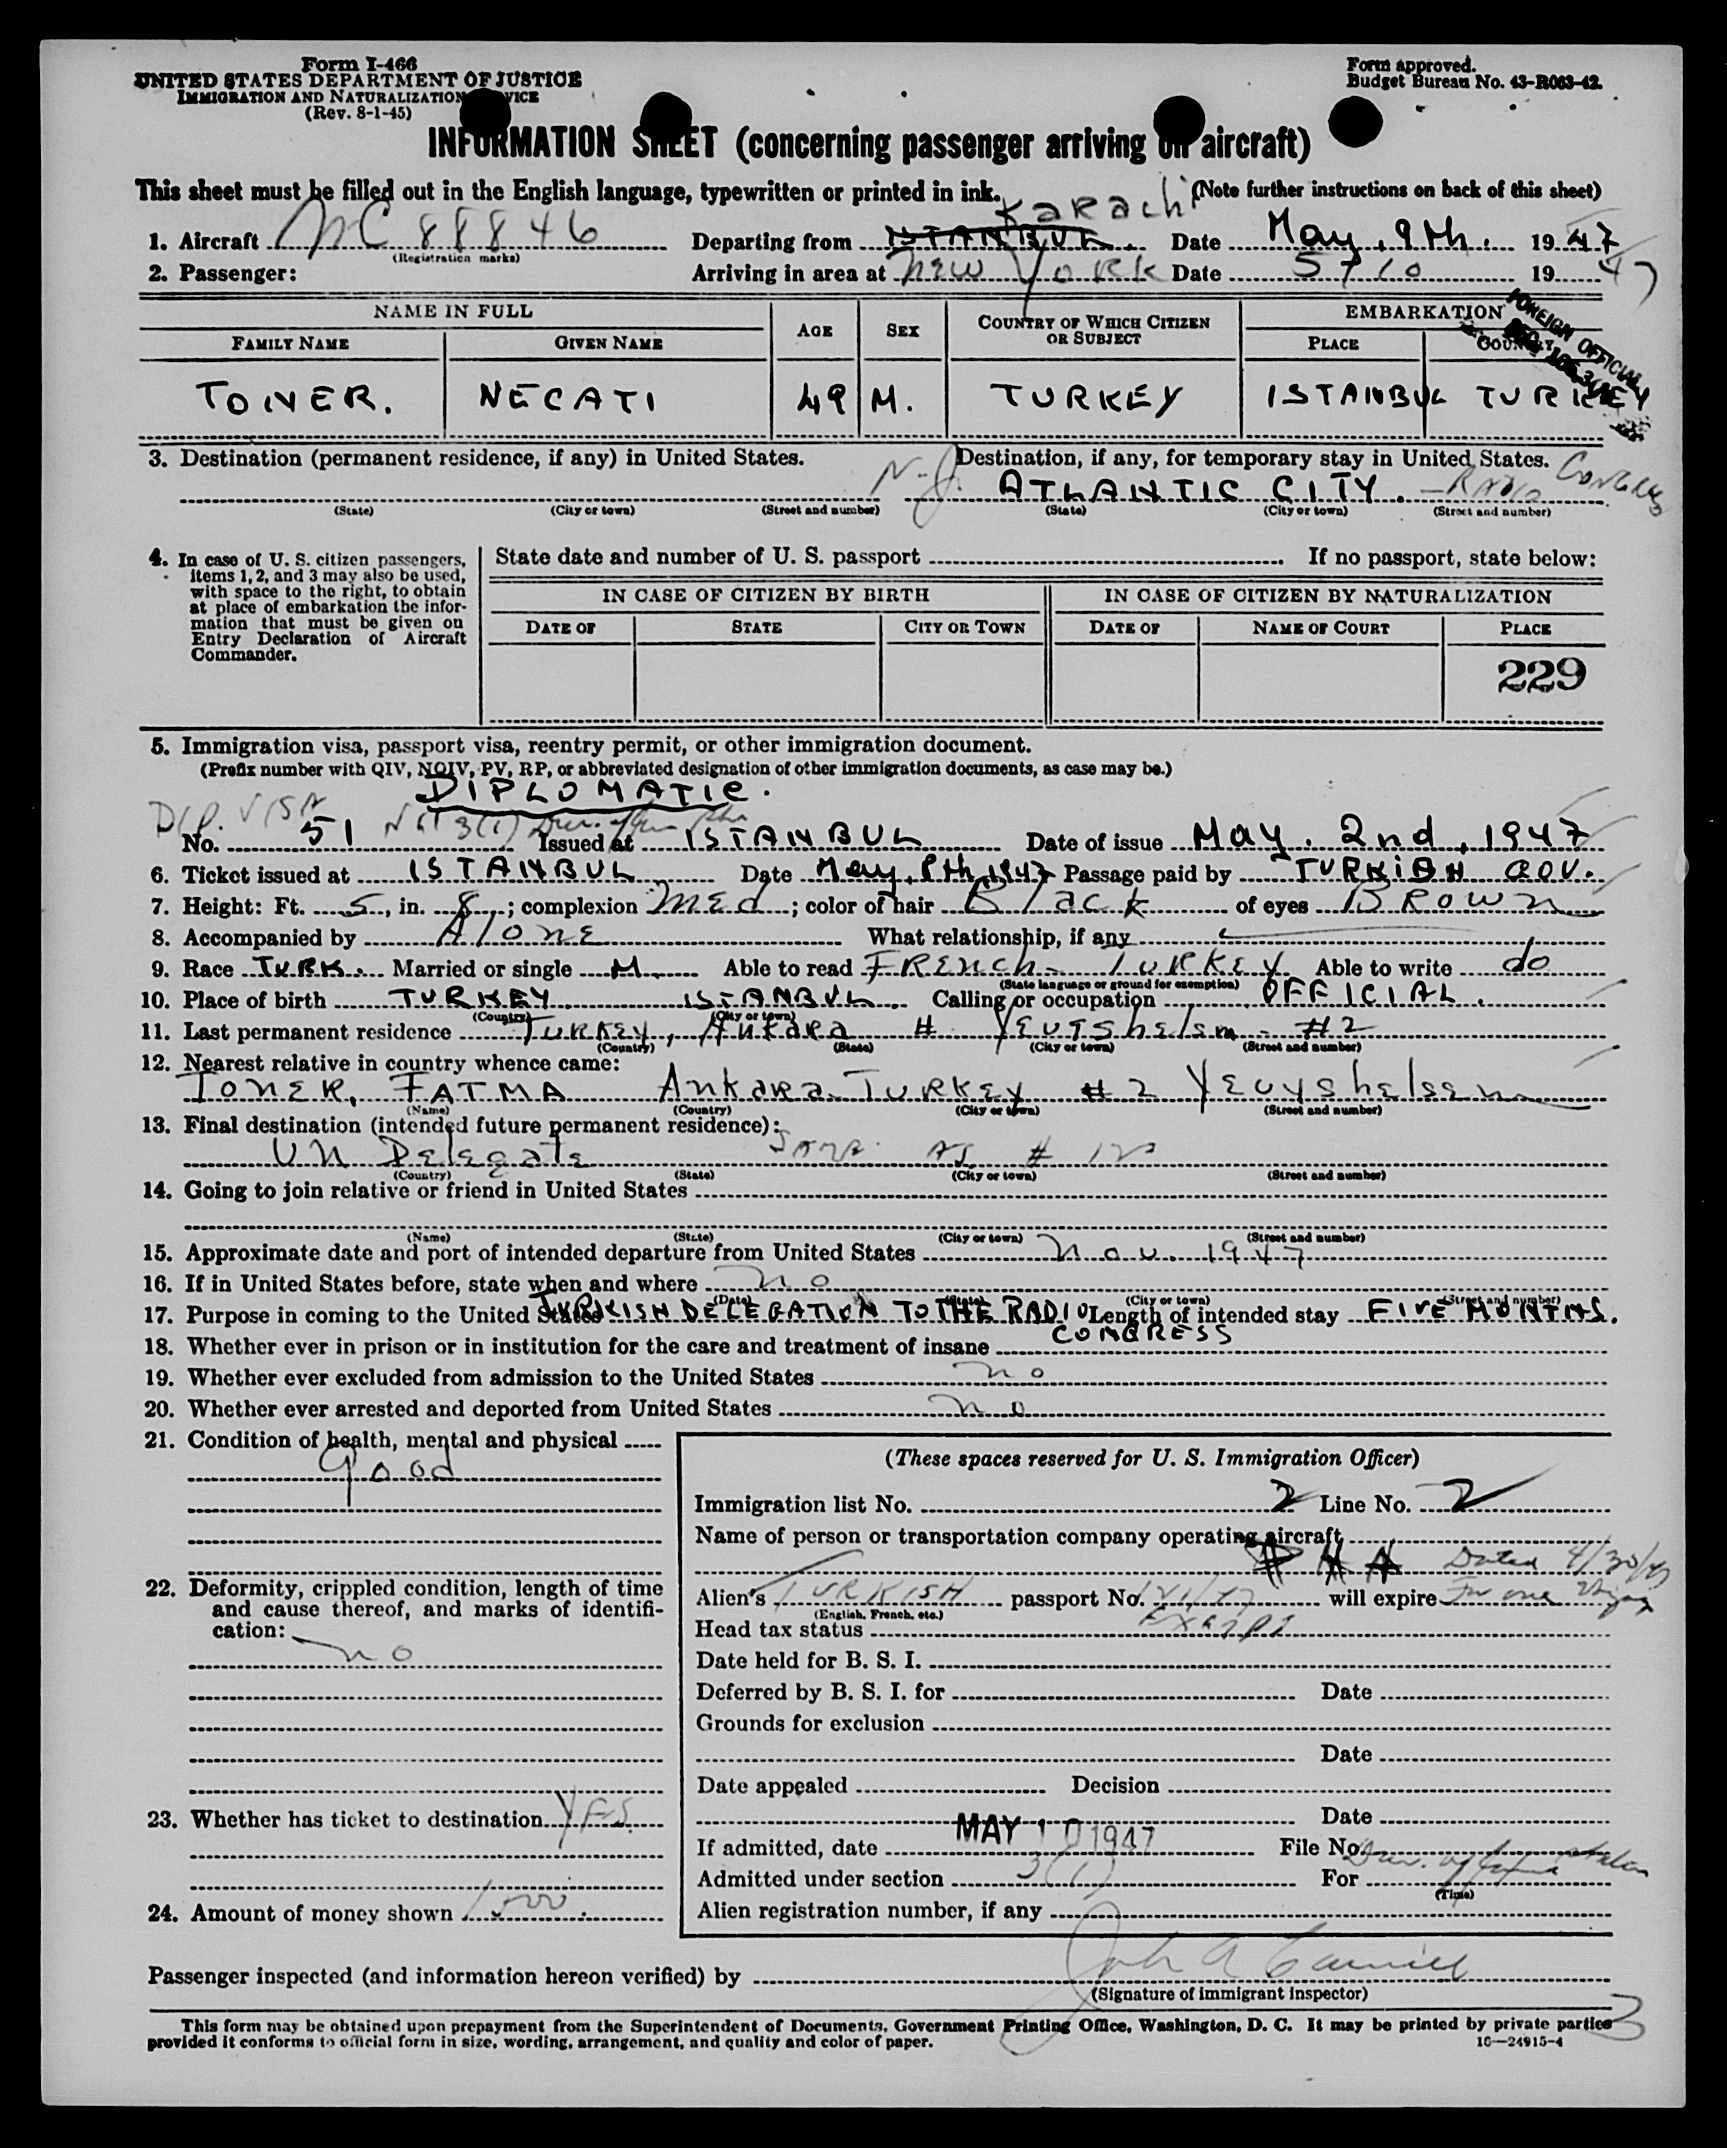 Form I-466
UNITED STATES DEPARTMENT OF JUSTICE
IMMIGRATION AND NATURALIZATION SERVICE
(Rev. 8-1-45)
Form approved.
Budget Bureau No. 43-R063-42.
INFORMATION SHEET (concerning passenger arriving on aircraft)
This sheet must be filled out in the English language, typewritten or printed in ink. (Note further instructions on back of this sheet)
Karachi
1. Aircraft NC 88846 Departing from ISTANBUL. Date May, 9th. 1947
(Registration marks)
2. Passenger: Arriving in area at New York Date 5/10 1947
NAME IN FULL AGE SEX COUNTRY OF WHICH CITIZEN OR SUBJECT EMBARKATION
FAMILY NAME GIVEN NAME PLACE COUNTRY
FOREIGN OFFICIAL
TONER. NECATI 49 M. TURKEY ISTANBUL TURKEY
3. Destination (permanent residence, if any) in United States. Destination, if any, for temporary stay in United States.
N.J. ATLANTIC CITY. - RADIO CONGRESS
(State) (City or town) (Street and number) (State) (City or town) (Street and number)
4. In case of U. S. citizen passengers, items 1, 2, and 3 may also be used, with space to the right, to obtain at place of embarkation the information that must be given on Entry Declaration of Aircraft Commander.
State date and number of U. S. passport If no passport, state below:
IN CASE OF CITIZEN BY BIRTH IN CASE OF CITIZEN BY NATURALIZATION
DATE OF STATE CITY OR TOWN DATE OF NAME OF COURT PLACE
229
5. Immigration visa, passport visa, reentry permit, or other immigration document.
(Prefix number with QIV, NQIV, PV, RP, or abbreviated designation of other immigration documents, as case may be.)
DIPLOMATIC.
DIP. VISA
No. 51 3(1) Issued at ISTANBUL Date of issue May. 2nd, 1947
6. Ticket issued at ISTANBUL Date May, 8th, 1947 Passage paid by TURKISH GOV.
7. Height: Ft. 5, in. 8; complexion Med; color of hair Black of eyes Brown
8. Accompanied by Alone What relationship, if any
9. Race TURK. Married or single M. Able to read FRENCH - TURKEY Able to write do
(State language or ground for exemption)
10. Place of birth TURKEY ISTANBUL Calling or occupation OFFICIAL.
(Country) (City or town)
11. Last permanent residence TURKEY, Ankara # #2
(Country) (State) (City or town) (Street and number)
12. Nearest relative in country whence came:
TONER, FATMA Ankara TURKEY #2
(Name) (Country) (City or town) (Street and number)
13. Final destination (intended future permanent residence):
UN Delegate Same as # 12
(Country) (State) (City or town) (Street and number)
14. Going to join relative or friend in United States
(Name) (State) (City or town) (Street and number)
15. Approximate date and port of intended departure from United States Nov. 1947
16. If in United States before, state when and where no
(Date) (State) (City or town) (Street and number)
17. Purpose in coming to the United States TURKISH DELEGATION TO THE RADIO Length of intended stay FIVE MONTHS.
CONGRESS
18. Whether ever in prison or in institution for the care and treatment of insane
19. Whether ever excluded from admission to the United States no
20. Whether ever arrested and deported from United States no
21. Condition of health, mental and physical
Good
22. Deformity, crippled condition, length of time and cause thereof, and marks of identification:
no
23. Whether has ticket to destination YES.
24. Amount of money shown
(These spaces reserved for U. S. Immigration Officer)
Immigration list No. 2 Line No. 2
Name of person or transportation company operating aircraft
PAA Dated 4/30/47
Alien's TURKISH passport No. 121/47 will expire For one
(English, French, etc.)
Head tax status Exempt
Date held for B. S. I.
Deferred by B. S. I. for Date
Grounds for exclusion
Date
Date appealed Decision
Date
If admitted, date MAY 10 1947 File No.
Admitted under section 3(1) For
(Time)
Alien registration number, if any
Passenger inspected (and information hereon verified) by
(Signature of immigrant inspector)
3
This form may be obtained upon prepayment from the Superintendent of Documents, Government Printing Office, Washington, D. C. It may be printed by private parties
provided it conforms to official form in size, wording, arrangement, and quality and color of paper. 16—24915-4